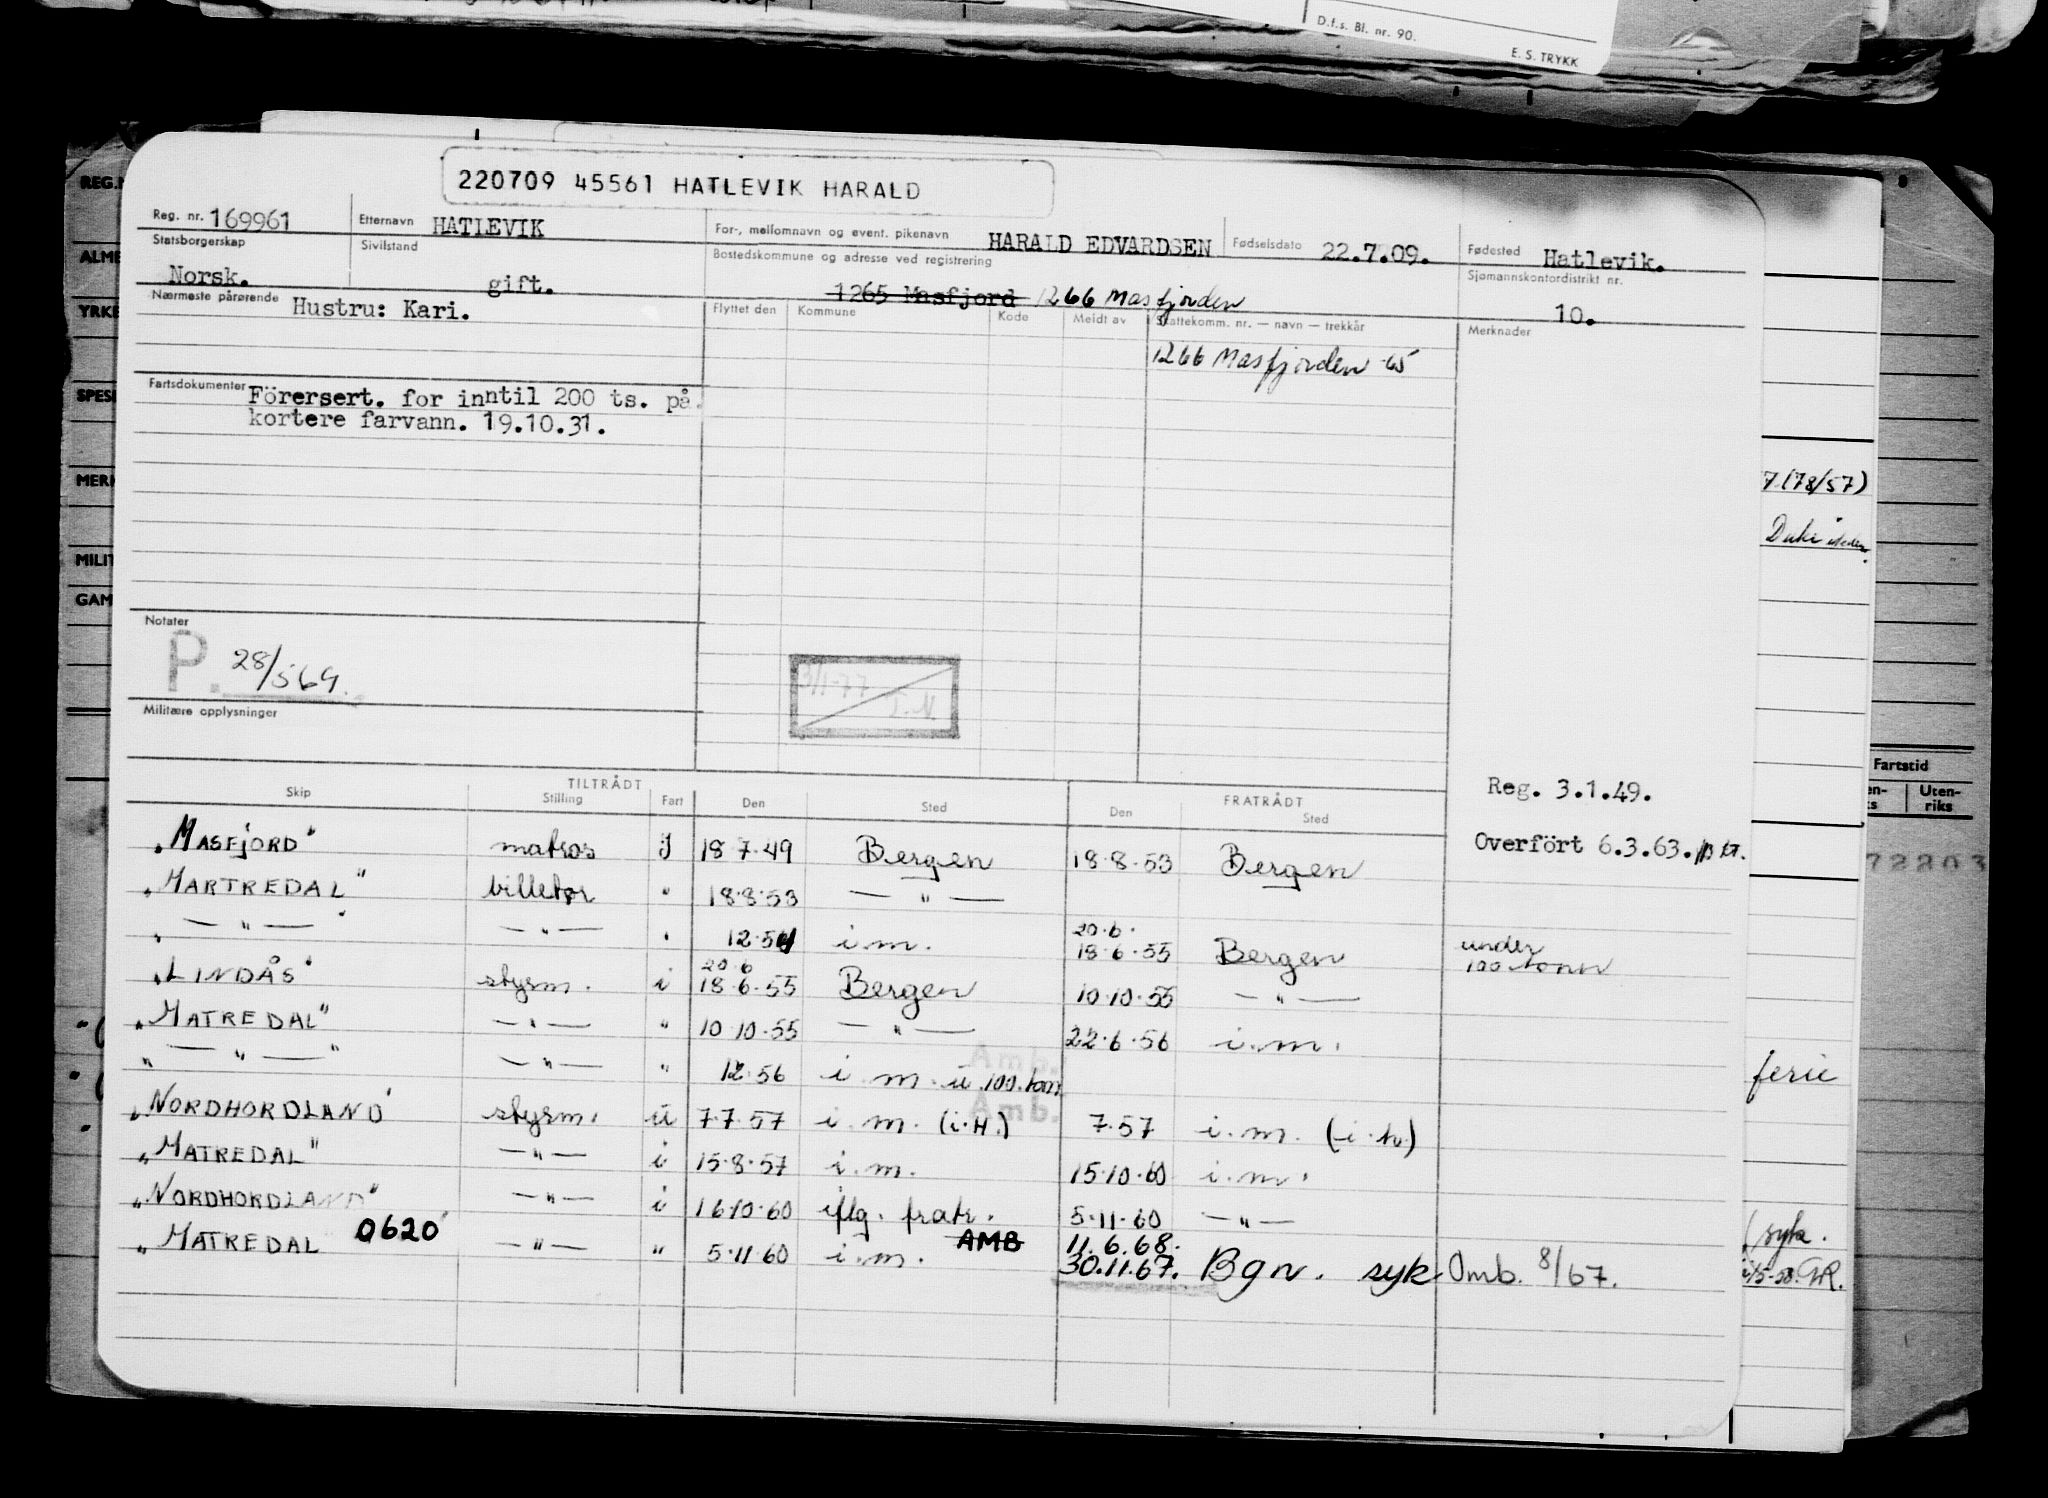 D.f.s. Bl. nr. 90.
E. S. TRYKK
220709 45561 HATLEVIK HARALD
Reg. nr. 169961
Etternavn HATLEVIK
For-, mellomnavn og event. pikenavn HARALD EDVARDSEN
Fødselsdato 22.7.09.
Fødested Hatlevik.
Statsborgerskap Norsk.
Sivilstand gift.
Bostedskommune og adresse ved registrering
1265 Masfjord 1266 Masfjorden
Sjømannskontordistrikt nr. 10.
Nærmeste pårørende Hustru: Kari.
Flyttet den Kommune Kode Meldt av Skattekomm. nr. — navn — trekkår Merknader
1266 Masfjorden -65
Fartsdokumenter Förersert. for inntil 200 ts. på
kortere farvann. 19.10.31.
Notater
P. 28/569.
3/1-77
Militære opplysninger
TILTRÅDT FRATRÅDT
Skip Stilling Fart Den Sted Den Sted
Reg. 3.1.49.
Overfört 6.3.63.
"MASFJORD" matros I 18·7·49 Bergen 18·8·53 Bergen
"MARTREDAL" billetør " 18·8·53 — " —
" — " — " — " — " 12·54 i.m. 20·6· 18·6·55 Bergen under 100 tonn
"LINDÅS" styrm. i 20·6 18·6·55 Bergen 10·10·55 — " —
"MATREDAL" — " — " 10·10·55 — " — 22·6·56 i.m.
" — " — " — " — " 12·56 i.m. u. 100. tonn
Amb.
Amb.
"NORDHORDLAND" styrm. u 7·7·57 i.m. (i.H.) 7·57 i.m. (i.h.)
"MATREDAL" — " — i 15·8·57 i.m. 15·10·60 i.m.
"NORDHORDLAND" — " — i 16·10·60 iflg. fratr. 5·11·60 — " —
"MATREDAL 0620" — " — " 5·11·60 i.m. AMB 11.6.68. 30.11.67. Bgn. syk. Omb. 8/67.
REG.N
ALME
YRKE
SPES
MERK
MILIT
GAM
7.(78/57)
ferie
Fartstid
Uten-
riks
72203
syk.